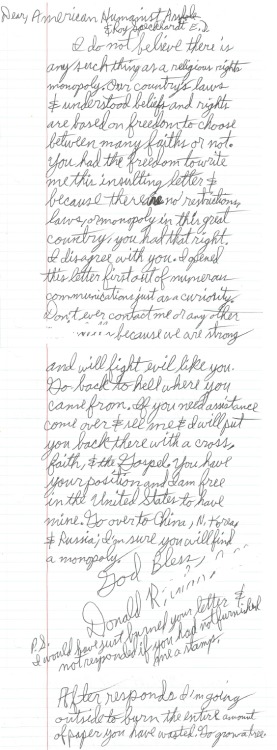 Dear American Humanist Asso
& Roy Speckhardt E.D.
I do not believe there is
any such thing as a religious rights
monopoly. Our country's laws
& understood beliefs and rights
are based on freedom to choose
between many faiths or not.
You had the freedom to write
me this insulting letter &
because there are no restrictions,
laws, or monopoly in this great
country, you had that right.
I disagree with you. I opened
this letter first out of numerous
communications just as a curiosity.
Don't ever contact me or any other
because we are strong
and will fight evil like you.
Go back to hell where you
came from. If you need assistance
come over & see me & I will put
you back there with a cross,
faith, & the Gospel. You have
your position and I am free
in the United States to have
mine. Go over to China, N. Korea,
& Russia, I'm sure you will find
a monopoly.
God Bless,
Donald R.
P.S. I would have just burned your letter &
not responded if you had not furnished
me a stamp.
After responds I'm going
outside to burn the entire amount
of paper you have wasted. Go grow a tree.